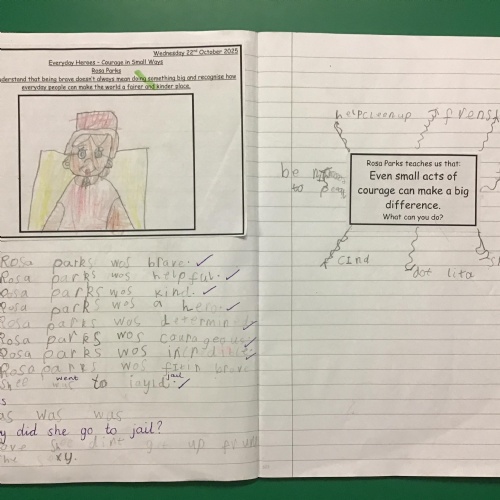 Wednesday 22nd October 2025
Everyday Heroes – Courage in Small Ways
Rosa Parks
understand that being brave doesn't always mean doing something big and recognise how
everyday people can make the world a fairer and kinder place.
Rosa parks wos brave.
Rosa parks wos helpful.
Rosa parks wos kind.
Rosa parks wos a hero.
Rosa parks was determined
Rosa parks wos courageous
Rosa parks wos incredible
Rosa parks wos brave
went jail
to
as was was
y did she go to jail?
up
xy.
help cleen up
frenst
be
to
Rosa Parks teaches us that:
Even small acts of
courage can make a big
difference.
What can you do?
cind
dot lita